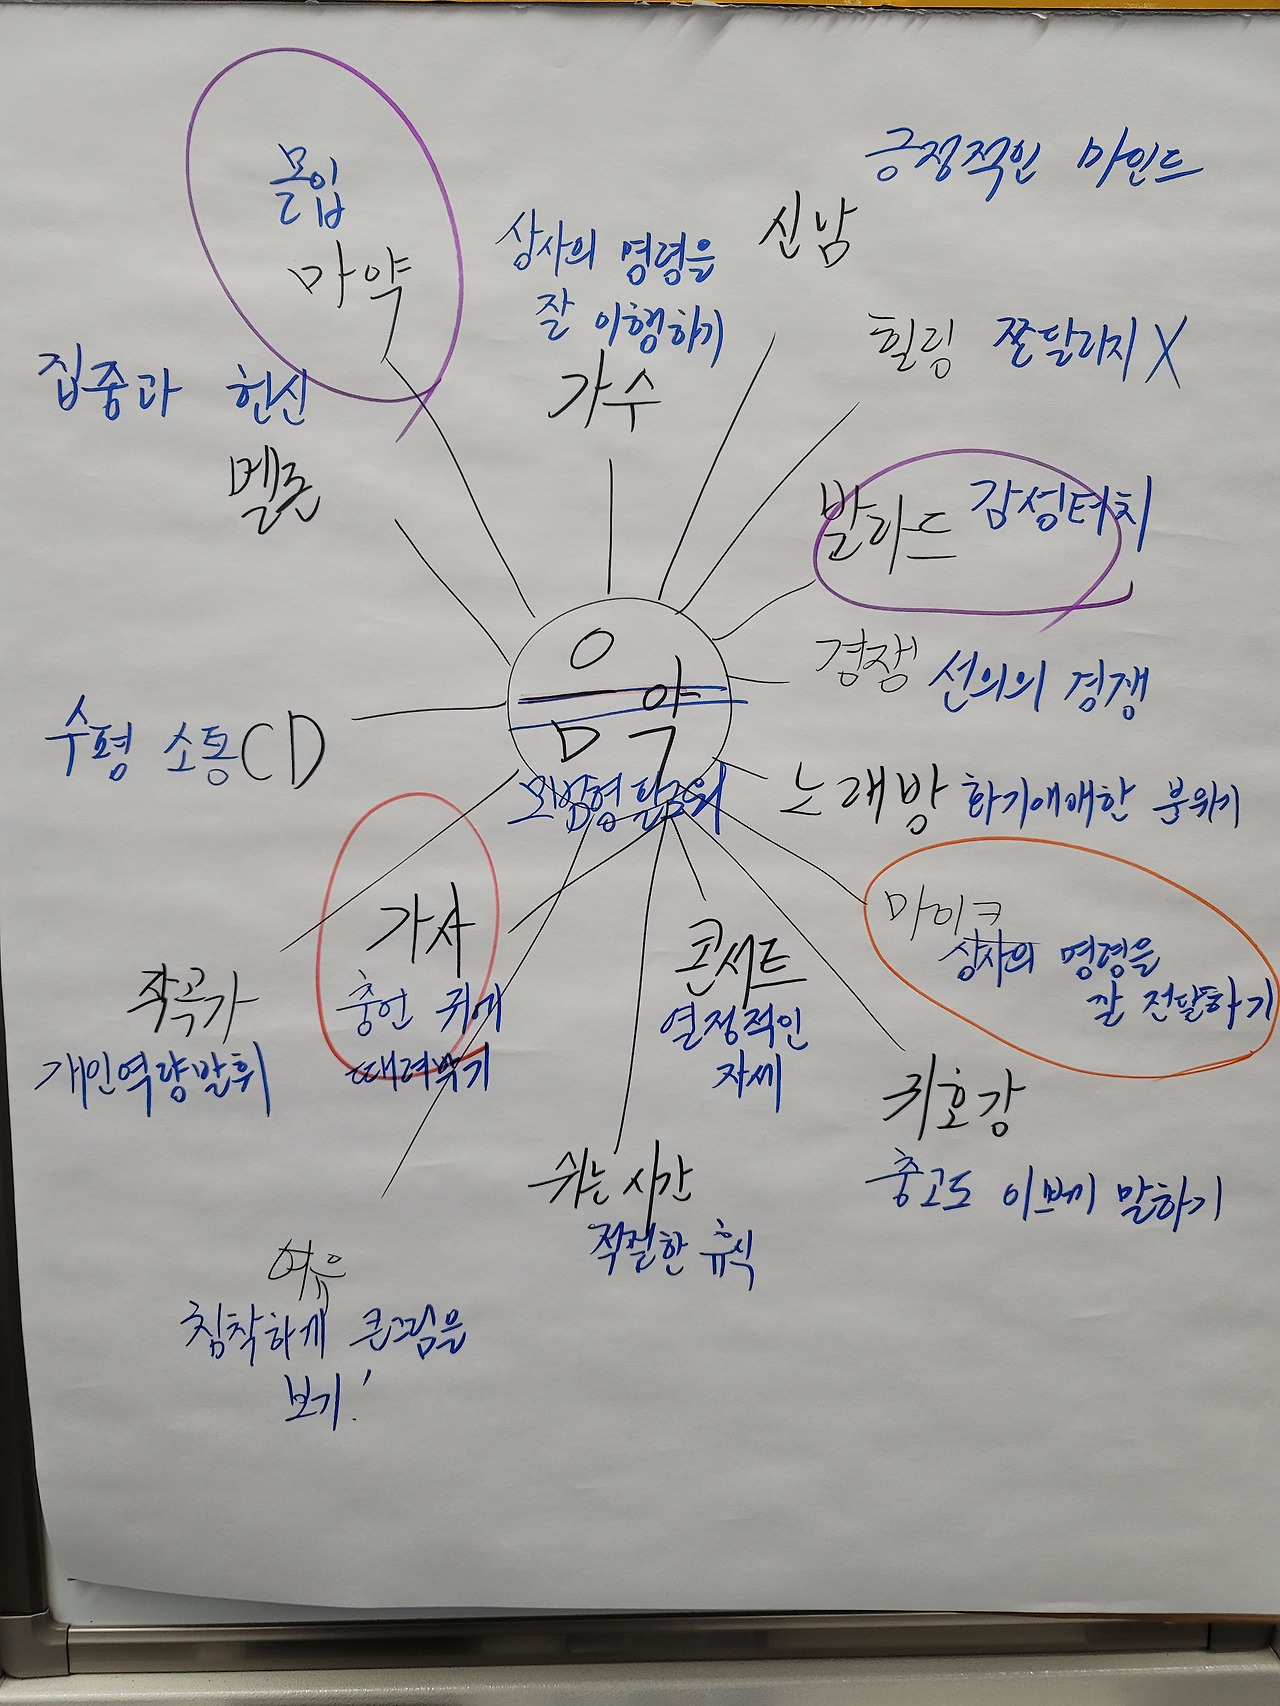 긍정적인 마인드
몰입
마약
신남
상사의 명령을
잘 이행하기
가수
힐링 쫀달리지 X
집중과 헌신
멜론
발라드 감성터치
음악
경쟁 선의의 경쟁
수평 소통 CD
노래방 화기애애한 분위기
모범형
가사
충언 귀에
때려박기
마이크
상사의 명령을
잘 전달하기
콘서트
열정적인
자세
작곡가
개인역량발휘
귀호강
충고도 이쁘게 말하기
쉬는시간
적절한 휴식
여유
침착하게 큰그림을
보기!